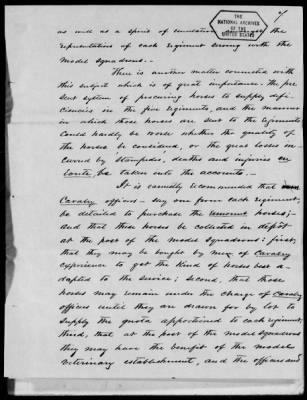 THE NATIONAL ARCHIVES OF THE UNITED STATES
as well as a spirit of emulation the
representatives of each regiment serving with the
Model Squadrons.-
There is another matter connected with
this subject which is of great importance. The pre
sent system of procuring horses to supply defi-
ciencies in the five regiments, and the manner
in which those horses are sent to the regiments
Could hardly be worse whether the quality of
the horses be considered, or the great losses in-
curred by Stampedes, deaths and injuries en
route, be taken into the accounts.-
It is earnestly recommended that
Cavalry officers - say one from each regiment,
be detailed to purchase the remount horses;-
and that these horses be collected in depôt
at the post of the Model Squadrons: first,
that they may be bought by men of Cavalry
experience to get the Kind of horses best a-
dapted to the service; Second, that those
horses may remain under the charge of Cavalry
officers until they are drawn for by lot to
Supply the quota apportioned to each regiment;
third, that at the post of the model squadrons
they may have the benefit of the model
veterinary establishment, and the officers and